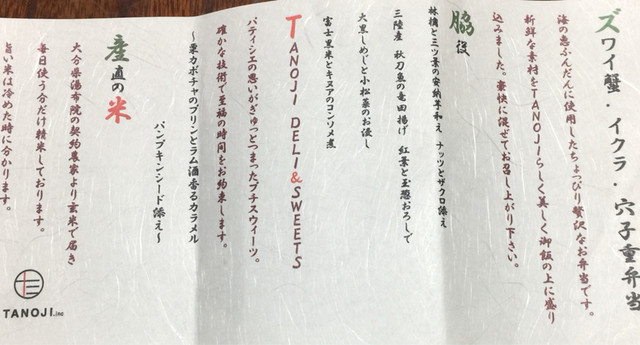 ズワイ蟹・イクラ・穴子重弁当
海の恵ふんだんに使用したちょっぴり贅沢なお弁当です。
新鮮な素材をTANOJIらしく美しく御飯の上に盛り
込みました。豪快に混ぜてお召し上がり下さい。
脇役
林檎と三ツ葉の安納芋和え ナッツとザクロ添え
三陸産 秋刀魚の竜田揚げ 紅葉と玉葱おろしで
大黒しめじと小松菜のお浸し
富士黒米とキヌアのコンソメ煮
TANOJI DELI&SWEETS
パティシエの思いがぎゅっとつまったプチスウィーツ。
確かな技術で至福の時間をお約束します。
～栗カボチャのプリンとラム酒香るカラメル
パンプキンシード添え～
産直の米
大分県湯布院の契約農家より玄米で届き
毎日使う分だけ精米しております。
旨い米は冷めた時に分かります。
TANOJI.inc